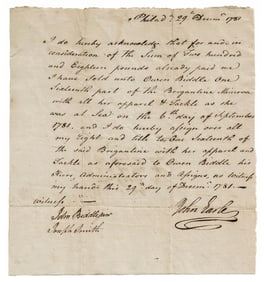 Philad.ª 29th Decem.r 1781
I do hereby acknowledge that for and in
consideration of the Sum of Five hundred
and Eighteen pounds already paid me
I have Sold unto Owen Biddle One
Sixteenth part of the Brigantine Minerva
with all her apparel & Tackle as she
was at Sea on the 6th day of September
1781, and I do hereby assign over all
my Right and title to two Sixteenths of
the said Brigantine with her apparel and
Tackle as aforesaid to Owen Biddle his
Heirs, Administrators and Assigns, as witness
my hand this 29th day of Decem.r 1781 —
Witness
John Biddle junr
Joseph Smith
John Earle